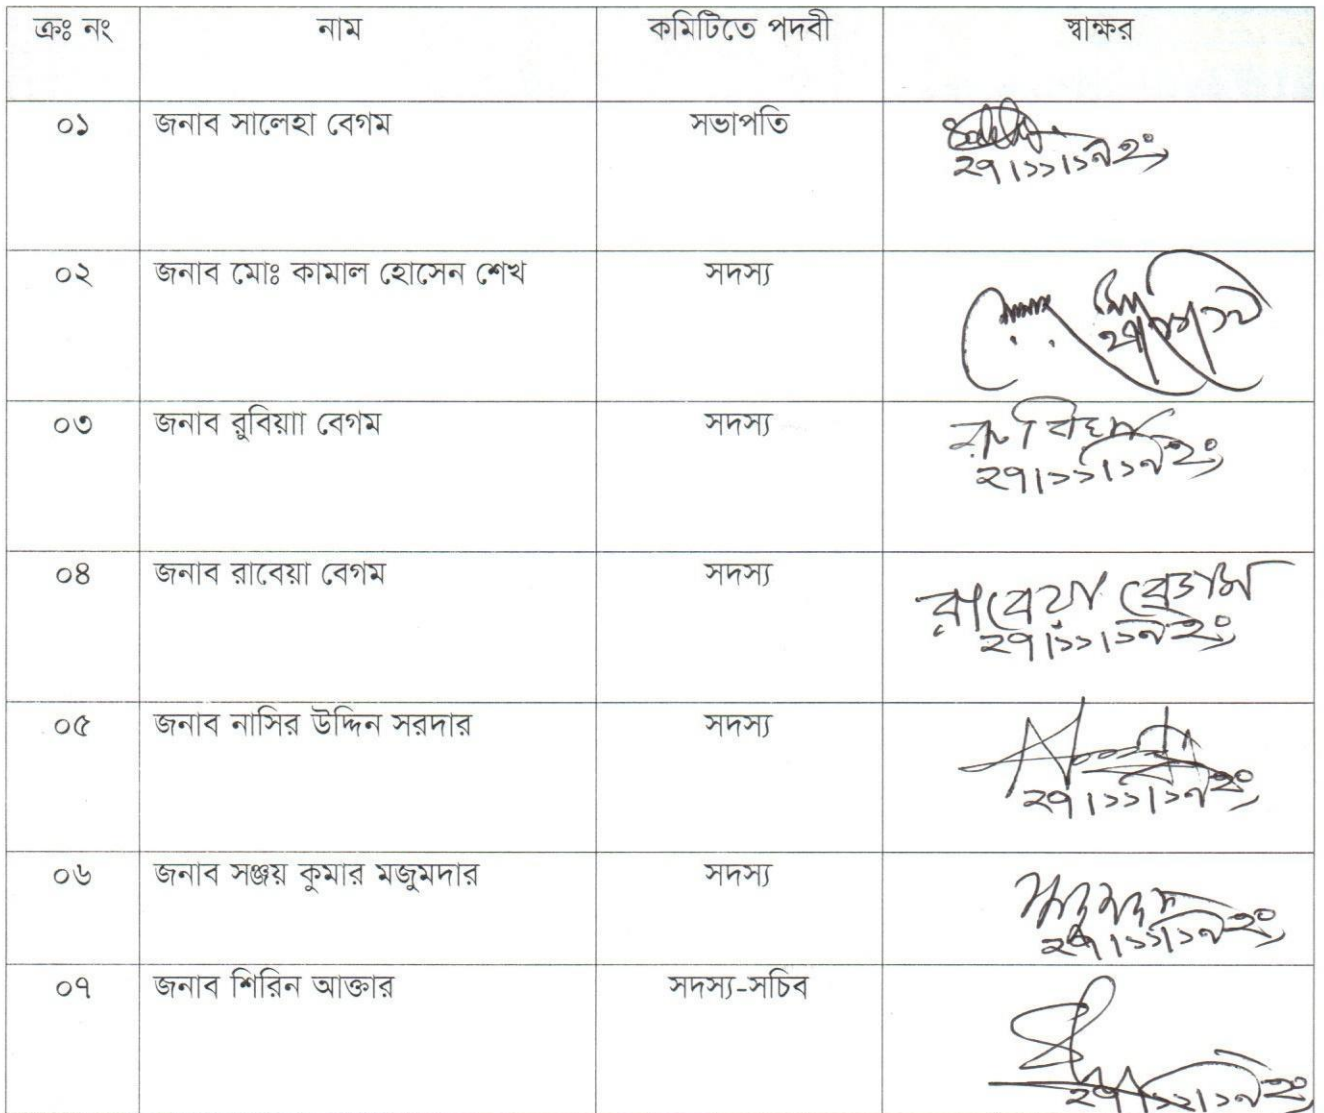 ক্রঃ নং নাম কমিটিতে পদবী স্বাক্ষর
০১ জনাব সালেহা বেগম সভাপতি
২৭।১১।১৯ইং
০২ জনাব মোঃ কামাল হোসেন শেখ সদস্য
০৩ জনাব রুবিয়াা বেগম সদস্য রুবিয়া
২৭।১১।১৯ইং
০৪ জনাব রাবেয়া বেগম সদস্য রাবেয়া বেগম
২৭।১১।১৯ইং
০৫ জনাব নাসির উদ্দিন সরদার সদস্য
২৭।১১।১৯ইং
০৬ জনাব সঞ্জয় কুমার মজুমদার সদস্য
২৭।১১।১৯ইং
০৭ জনাব শিরিন আক্তার সদস্য-সচিব
২৭।১১।১৯ইং